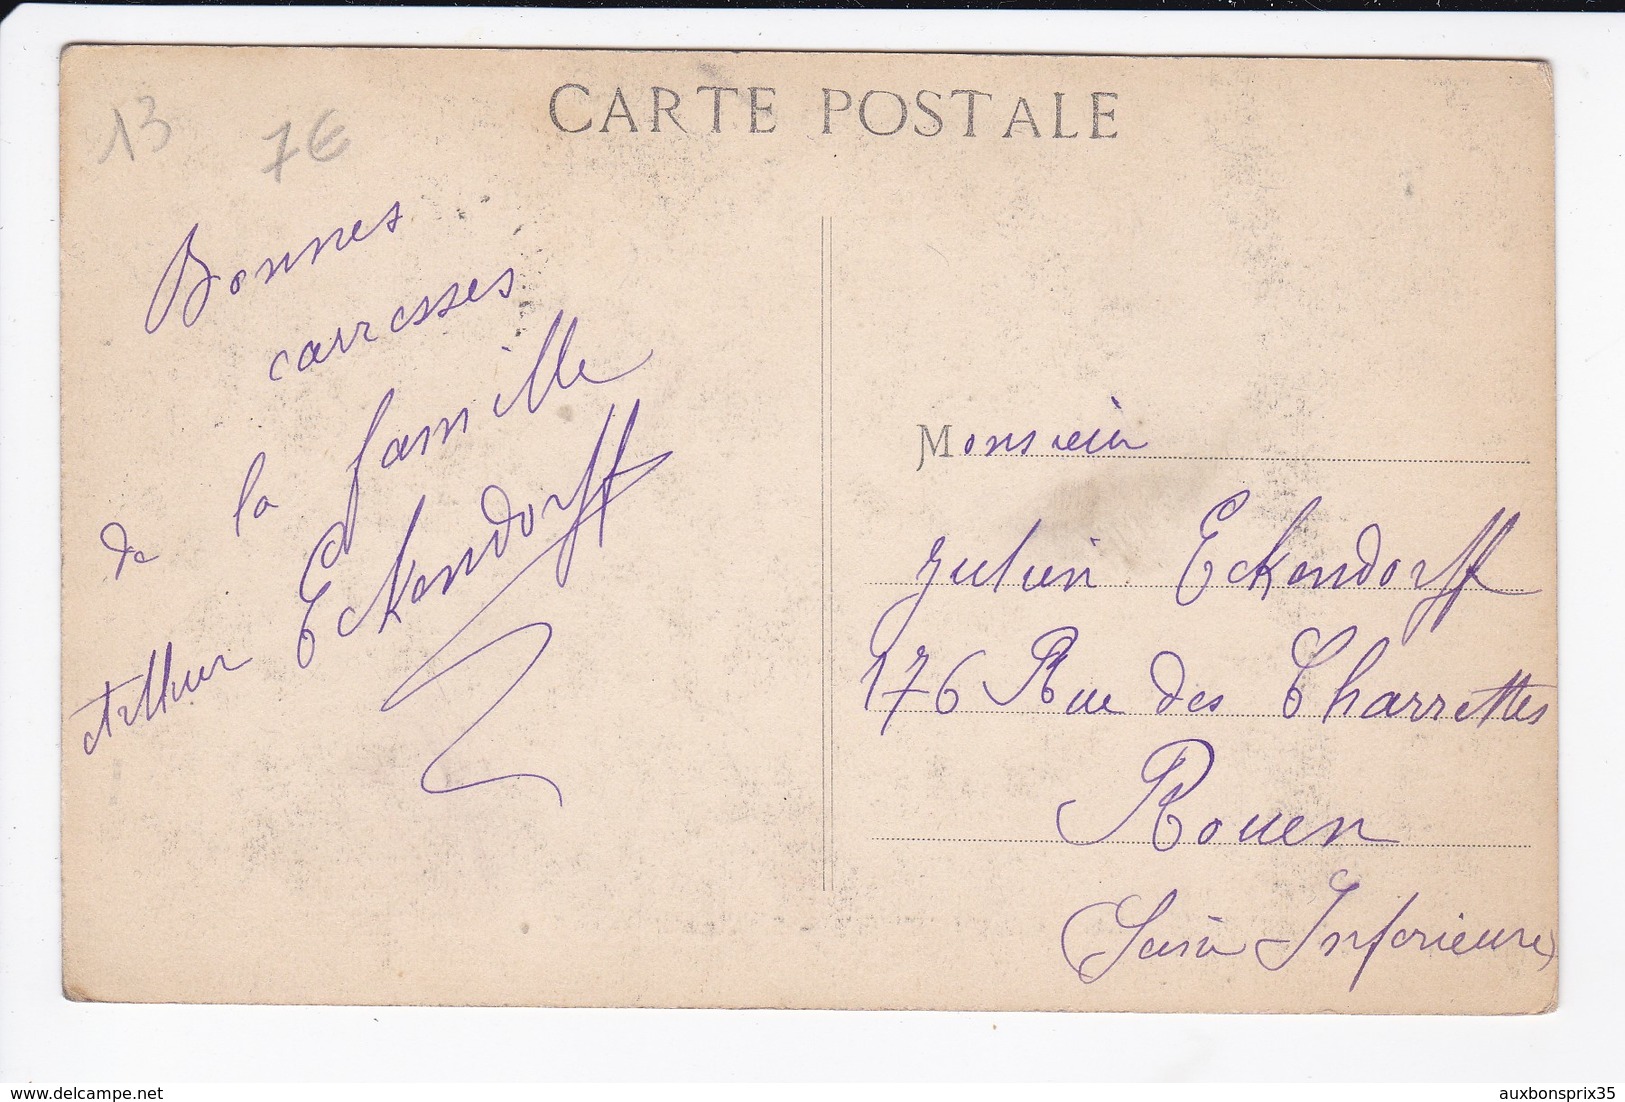 CARTE POSTALE
13
7€
Bonnes
carresses
de la famille
Arthur Eckendorff
Monsieur
Julien Eckendorff
176 Rue des Charrettes
Rouen
(Seine Inférieure)
delcampe.net
auxbonsprix35